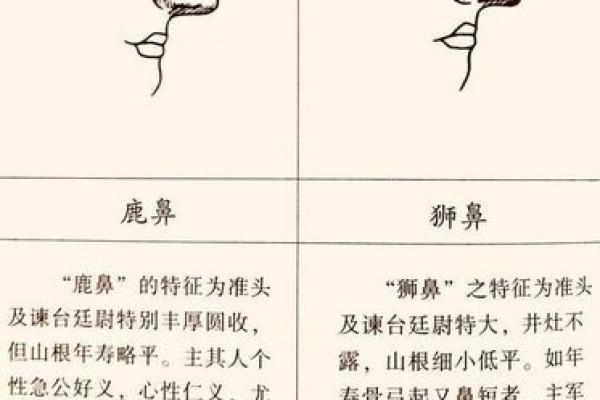 鹿鼻
狮鼻
“鹿鼻”的特征为准头
及谏台廷尉特别丰厚圆收，
但山根年寿略平。主其人个
性急公好义，心性仁义，尤
“狮鼻”之特征为准头
及谏台廷尉特大，井灶不
露，山根细小低平。如年
寿骨弓起又鼻短者，主军